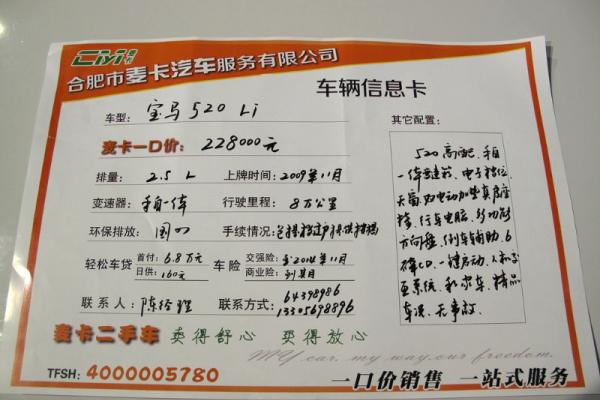 CM 麦卡
合肥市麦卡汽车服务有限公司
车辆信息卡
车型: 宝马520 Li
麦卡一口价: 228000元
排量: 2.5 L 上牌时间: 2009年11月
变速器: 手自一体 行驶里程: 8万公里
环保排放: 国IV 手续情况:
轻松车贷 首付: 6.8万元 车险 交强险: 到2014年11月
日供: 160元 商业险: 到其月
联系人: 陈经理 联系方式: 64398986
13305698896
其它配置:
520高配、手自
一体变速箱、电子挡位、
天窗、双电动加热真皮座
椅、行车电脑、多功能
方向盘、倒车辅助、6
碟CD、一键启动、人机交
互系统、私家车、精品
车况、无事故.
麦卡二手车 卖得舒心 买得放心
MY car. my way.our freedom.
TFSH: 4000005780
一口价销售 一站式服务